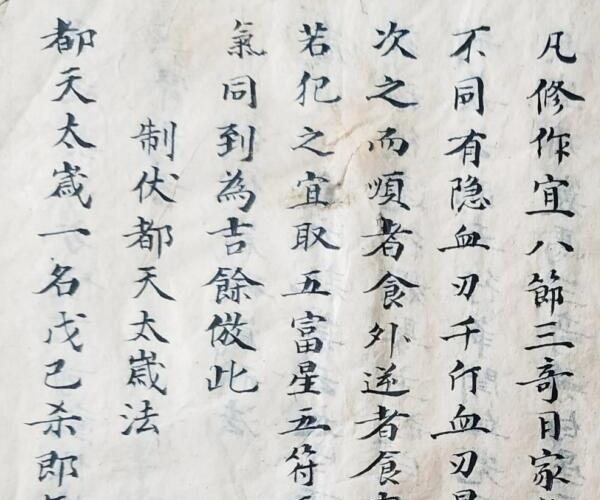 凡修作宜八節三奇日家
不同有隐血刃千斤血刃
次之而順者食外逆者食
若犯之宜取五富星五符
氣同到為吉餘倣此
制伏都天太歲法
都天太歲一名戊己杀郎